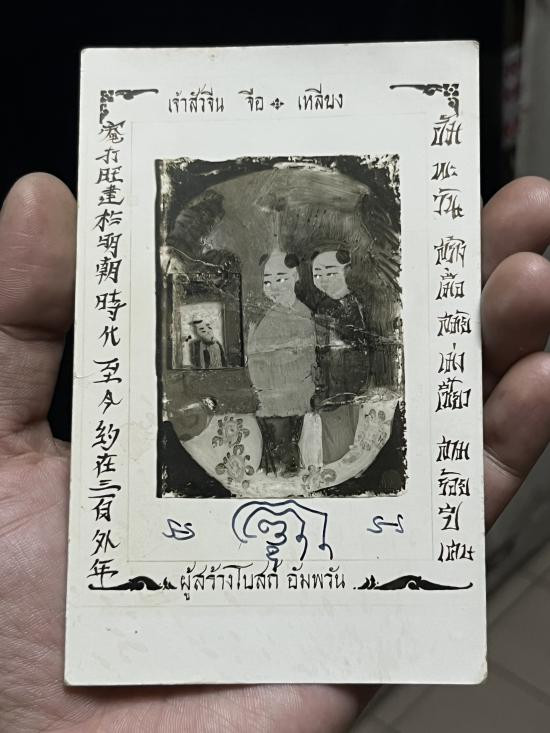 เจ้าสัวจิ๋น จือ เหลียง
庵打旺建於明朝時代至今約在三百外年
อัม
พะ
วัน
สร้าง
เมื่อ
สมัย
เหม่ง
เชี้ยว
สาม
ร้อย
ปี
เศษ
ผู้สร้างโบสถ์ อัมพวัน